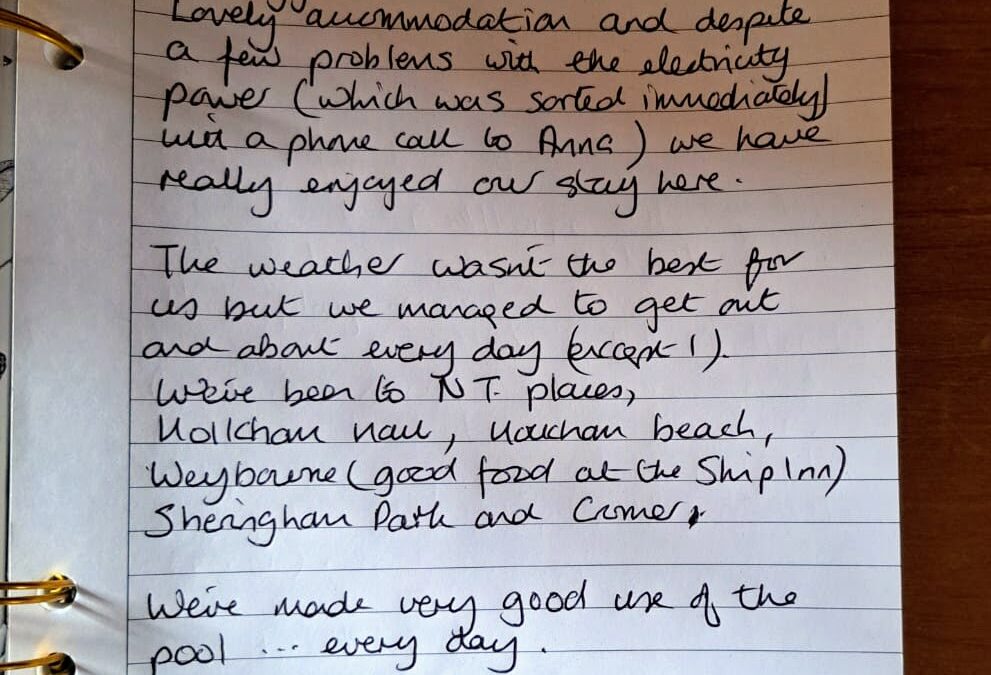 Lovely accommodation and despite
a few problems with the electricity
power (which was sorted immediately
with a phone call to Anna) we have
really enjoyed our stay here.
The weather wasn't the best for
us but we managed to get out
and about every day (except 1).
We've been to N.T. places,
Holkham Hall, Holkham beach,
Weybourne (good food at the Ship Inn)
Sheringham Park and Cromer,
We've made very good use of the
pool ... every day.